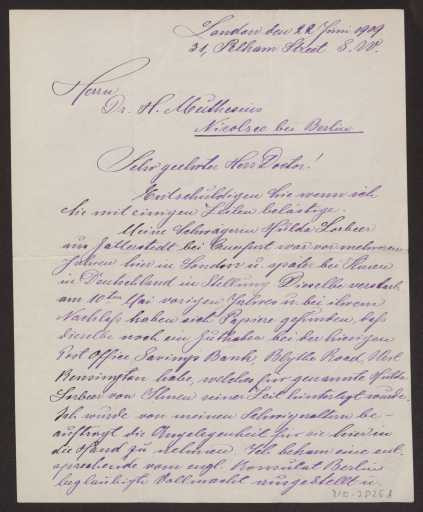 London den 22 Juni 1909
31, Pelham Street S.W.
Herrn
Dr. H. Muthesius
Nicolsee bei Berlin
Sehr geehrter Herr Doctor!
Entschuldigen Sie wenn ich
Sie mit einigen Zeilen belästige.
Meine Schwägerin Hulda Sorbeer
aus bei Querfurt war vor mehreren
Jahren hier in London u. später bei Ihnen
in Deutschland in Stellung Dieselbe verstarb
am 10ten Mai vorigen Jahres u. bei ihrem
Nachlaß haben sich Papiere gefunden, daß
dieselbe noch ein Guthaben bei der hiesigen
Post Office Savings Bank, Blythe Road West
Kensington habe, welches für genannte Hulda
Sorbeer von Ihnen seiner Zeit hinterlegt wurde.
Ich wurde von meinen Schwiegereltern be-
auftragt die Angelegenheit für sie hier in
die Hand zu nehmen. Ich bekam eine ent-
sprechende vom engl. Konsulat Berlin
beglaubigte Vollmacht ausgestellt u.